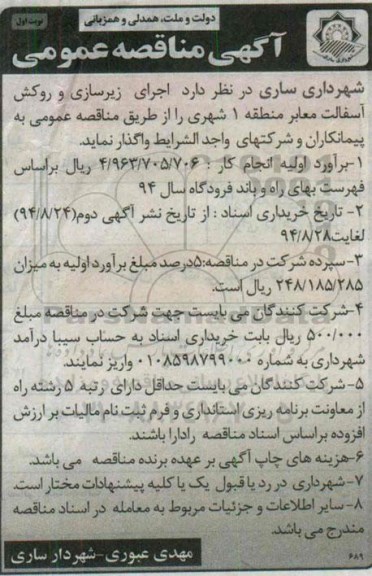 دولت و ملت، همدلی و همزبانی
نوبت اول
آگهی مناقصه عمومی
شهرداری ساری در نظر دارد اجرای زیرسازی و روکش
آسفالت معابر منطقه ۱ شهری را از طریق مناقصه عمومی به
پیمانکاران و شرکتهای واجد الشرایط واگذار نماید.
۱-برآورد اولیه انجام کار : ۴/۹۶۳/۷۰۵/۷۰۶ ریال براساس
فهرست بهای راه و باند فرودگاه سال ۹۴
۲- تاریخ خریداری اسناد : از تاریخ نشر آگهی دوم(۹۴/۸/۲۴)
لغایت۹۴/۸/۲۸
۳-سپرده شرکت در مناقصه:۵درصد مبلغ برآورد اولیه به میزان
۲۴۸/۱۸۵/۲۸۵ ریال است.
۴-شرکت کنندگان می بایست جهت شرکت در مناقصه مبلغ
۵۰۰/۰۰۰ ریال بابت خریداری اسناد به حساب سیبا درآمد
شهرداری به شماره ۰۱۰۸۵۹۸۷۹۹۰۰۰ واریز نمایند.
۵-شرکت کنندگان می بایست حداقل دارای رتبه ۵ رشته راه
از معاونت برنامه ریزی استانداری و فرم ثبت نام مالیات بر ارزش
افزوده براساس اسناد مناقصه رادارا باشند.
۶-هزینه های چاپ آگهی بر عهده برنده مناقصه می باشد.
۷-شهرداری در رد یا قبول یک یا کلیه پیشنهادات مختار است.
۸-سایر اطلاعات و جزئیات مربوط به معامله در اسناد مناقصه
مندرج می باشد.
مهدی عبوری-شهردار ساری
۶۸۹